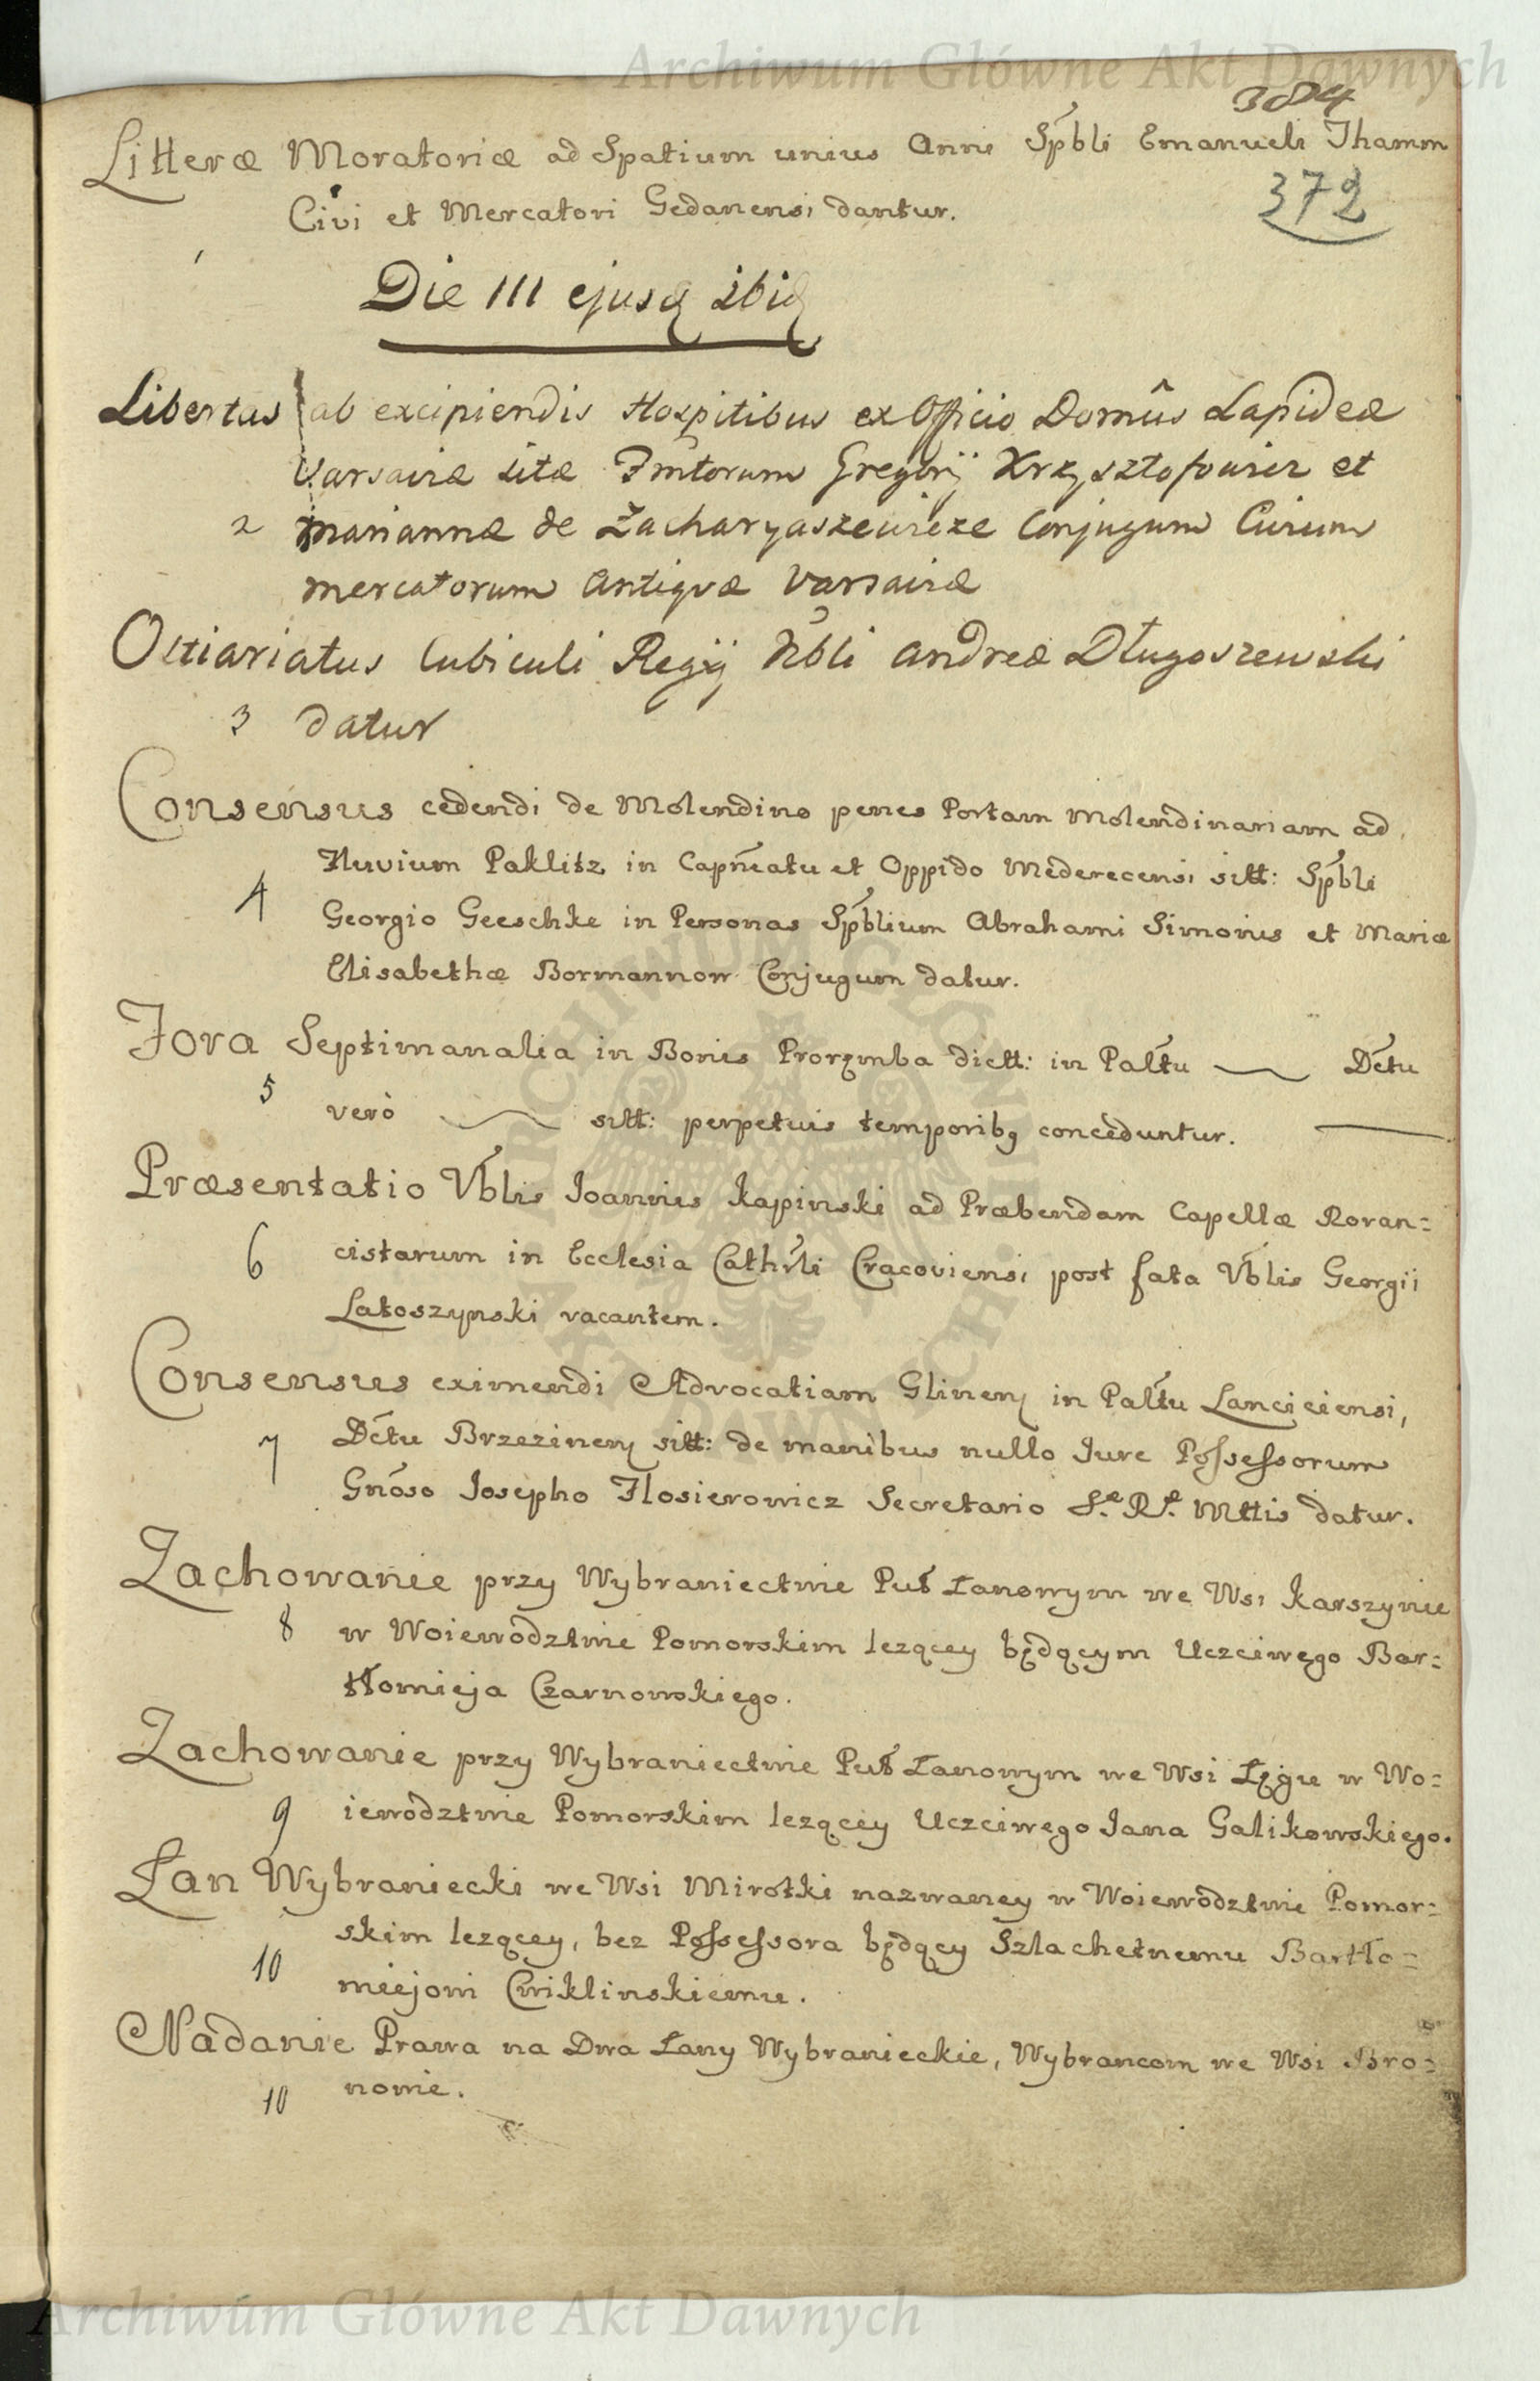 Archiwum Główne Akt Dawnych
3084
Litteræ Moratoriæ ad Spatium unius Anni Spbli Emanueli Thamm
372
Civi et Mercatori Gedanensi dantur.
1
Die III ejusq ibiq
Libertas ab excipiendis Hospitibus ex Officio Domûs Lapideæ
Varsaviæ sitæ Fmtorum Gregorij Krzysztofowicz et
2 Mariannæ de Zacharyaszewicze Conjugum Civium
Mercatorum Antiqvæ Varsaviæ
Ostiariatus Cubiculi Regij Nbli Andreæ Długoszewski
3 datur
Consensus cedendi de Molendino penes Portam Molendinariam ad
Fluvium Paklitz in Capneatu et Oppido Mederecensi sitt: Spbli
4
Georgio Geeschke in Personas Spblium Abrahami Simonis et Mariæ
Elisabethæ Bormannow Conjugum datur.
Fora Septimanalia in Bonis Prorzmba dictt: in Paltu Dctu
5
verò sitt: perpetuis temporibq conceduntur.
Præsentatio Vblis Joannis Kapinski ad Præbendam Capellæ Roran=
6 cistarum in Ecclesia Cathrli Cracoviensi post fata Vblis Georgii
Latoszynski vacantem.
Consensus eximendi Advocatiam Glinen in Paltu Lanciciensi,
7 Dctu Brzezinen sitt: de manibus nullo Jure Possessorum
Gnoso Josepho Flosierowicz Secretario S. R. Mttis datur.
Zachowanie przy Wybraniectwie Puł Łanowym we Wsi Karszynie
8 w Woiewodztwie Pomorskim lezącey będącym Uczciwego Bar=
tłomieja Czarnowskiego.
Zachowanie przy Wybraniectwie Puł Łanowym we Wsi Łęgu w Wo=
9 iewodztwie Pomorskim lezącey Uczciwego Jana Galikowskiego.
Łan Wybraniecki we Wsi Mirotki nazwaney w Woiewodztwie Pomor=
skim lezącey, bez Possessora będący Szlachetnemu Bartło=
10
miejowi Cwiklinskiemu.
Nadanie Prawa na Dwa Łany Wybranieckie, Wybrancom we Wsi Bro=
10 nowie.
Archiwum Główne Akt Dawnych